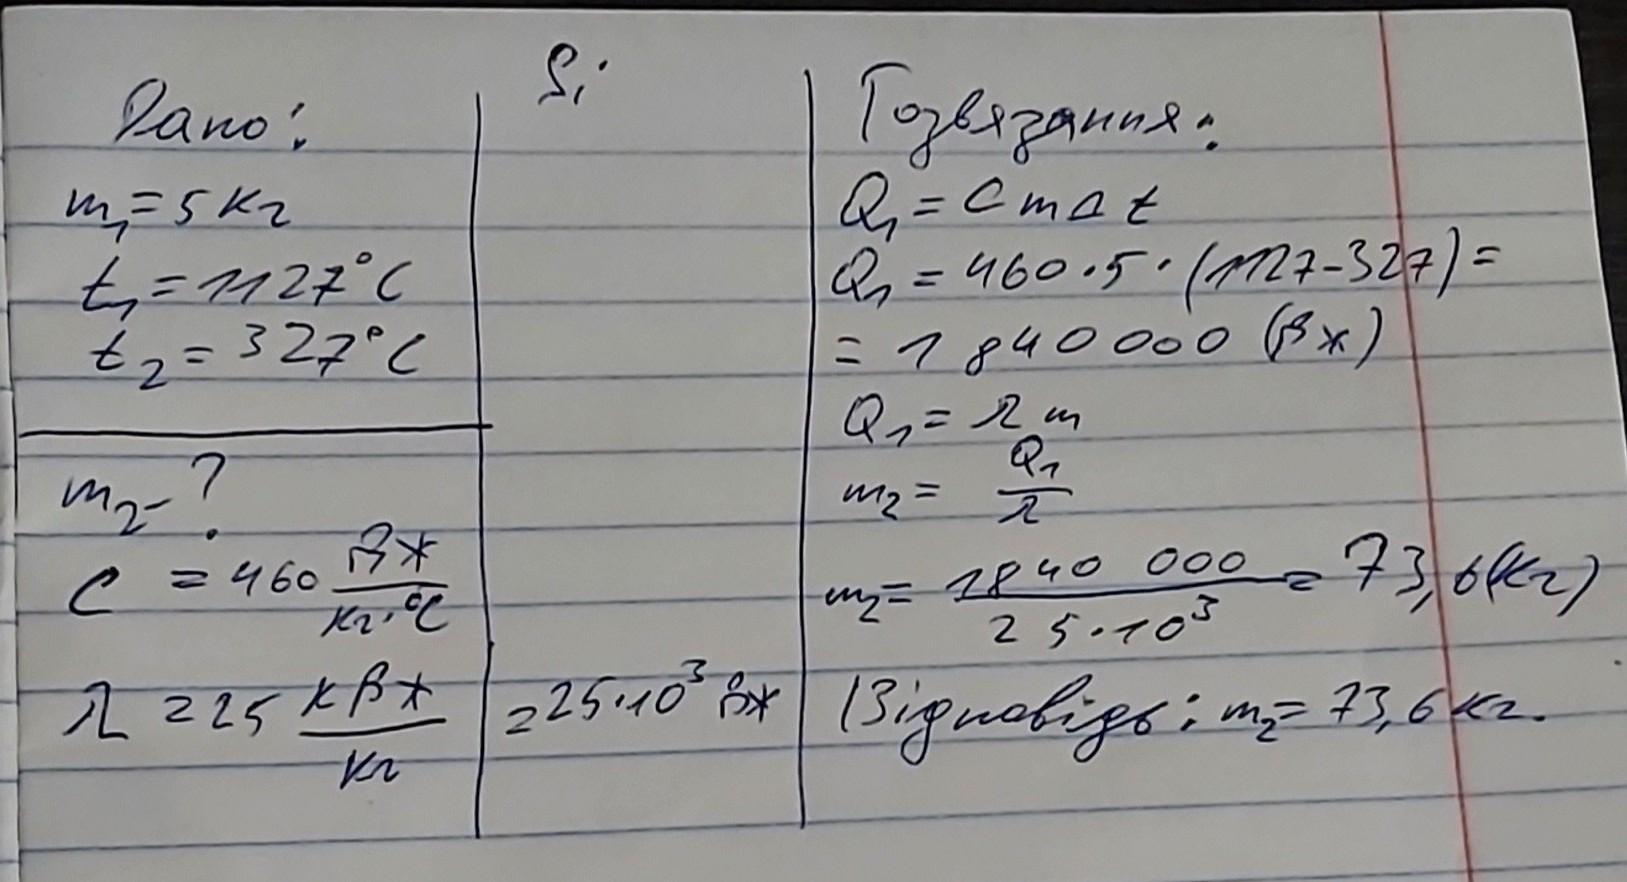 Дано:
m₁ = 5 кг
t₁ = 1127°C
t₂ = 327°C
m₂ - ?
C = 460 Дж/кг·°C
λ = 25 кДж/кг
Si
= 25·10³ Дж
Розвязання:
Q₁ = C m Δ t
Q₁ = 460·5·(1127-327) =
= 1 840 000 (Дж)
Q₁ = λ m
m₂ = Q₁/λ
m₂ = 1840 000/25·10³ = 73,6 (кг)
Відповідь: m₂ = 73,6 кг.